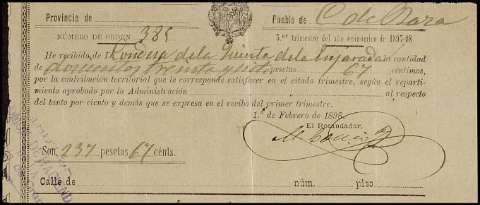 Provincia de
Pueblo de C. de Vara
NÚMERO DE ORDEN 385
3.er trimestre del año económico de 1897-98
He recibido de Condesa de la Quinta de la Enjarada la cantidad
de doscientas treinta y siete pesetas 67 céntimos,
por la contribución territorial que le corresponde satisfacer en el citado trimestre, según el reparti-
miento aprobado por la Administración al respecto
del tanto por ciento y demás que se expresa en el recibo del primer trimestre.
1.º de Febrero de 1898.
El Recaudador,
Son 237 pesetas 67 cénts.
Calle de núm. piso